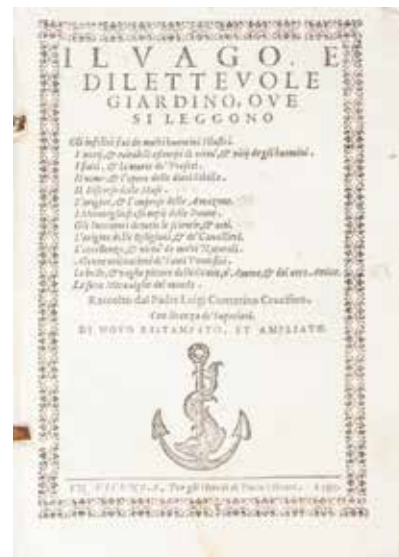 IL VAGO, E
DILETTEVOLE
GIARDINO, OVE
SI LEGGONO
Gli infelici fini de molti huomini Illustri.
I varij, & mirabili essempi di virtù, & vitij degli huomini.
I fatti, & la morte de' Profeti.
Il nome, & l'opere delle dieci Sibille.
Il Discorso delle Muse.
L'origine, & l'imprese delle Amazone.
I Meravigliosi essempij delle Donne.
Gli Inventori de tutte le scientie, & arti.
L'origine delle Religioni, & de' Cavallieri.
L'eccellenze, & virtù de molti Naturali.
Le belle, & vaghe pitture delle Gratie, d'Amore, & del vero Amico.
Le sette Meraviglie del mondo.
Raccolto dal Padre Luigi Contarino Crucifero.
Con licenza de' Superiori.
DI NOVO RISTAMPATO, ET AMPLIATO.
IN VICENZA, Per gli Heredi di Perin